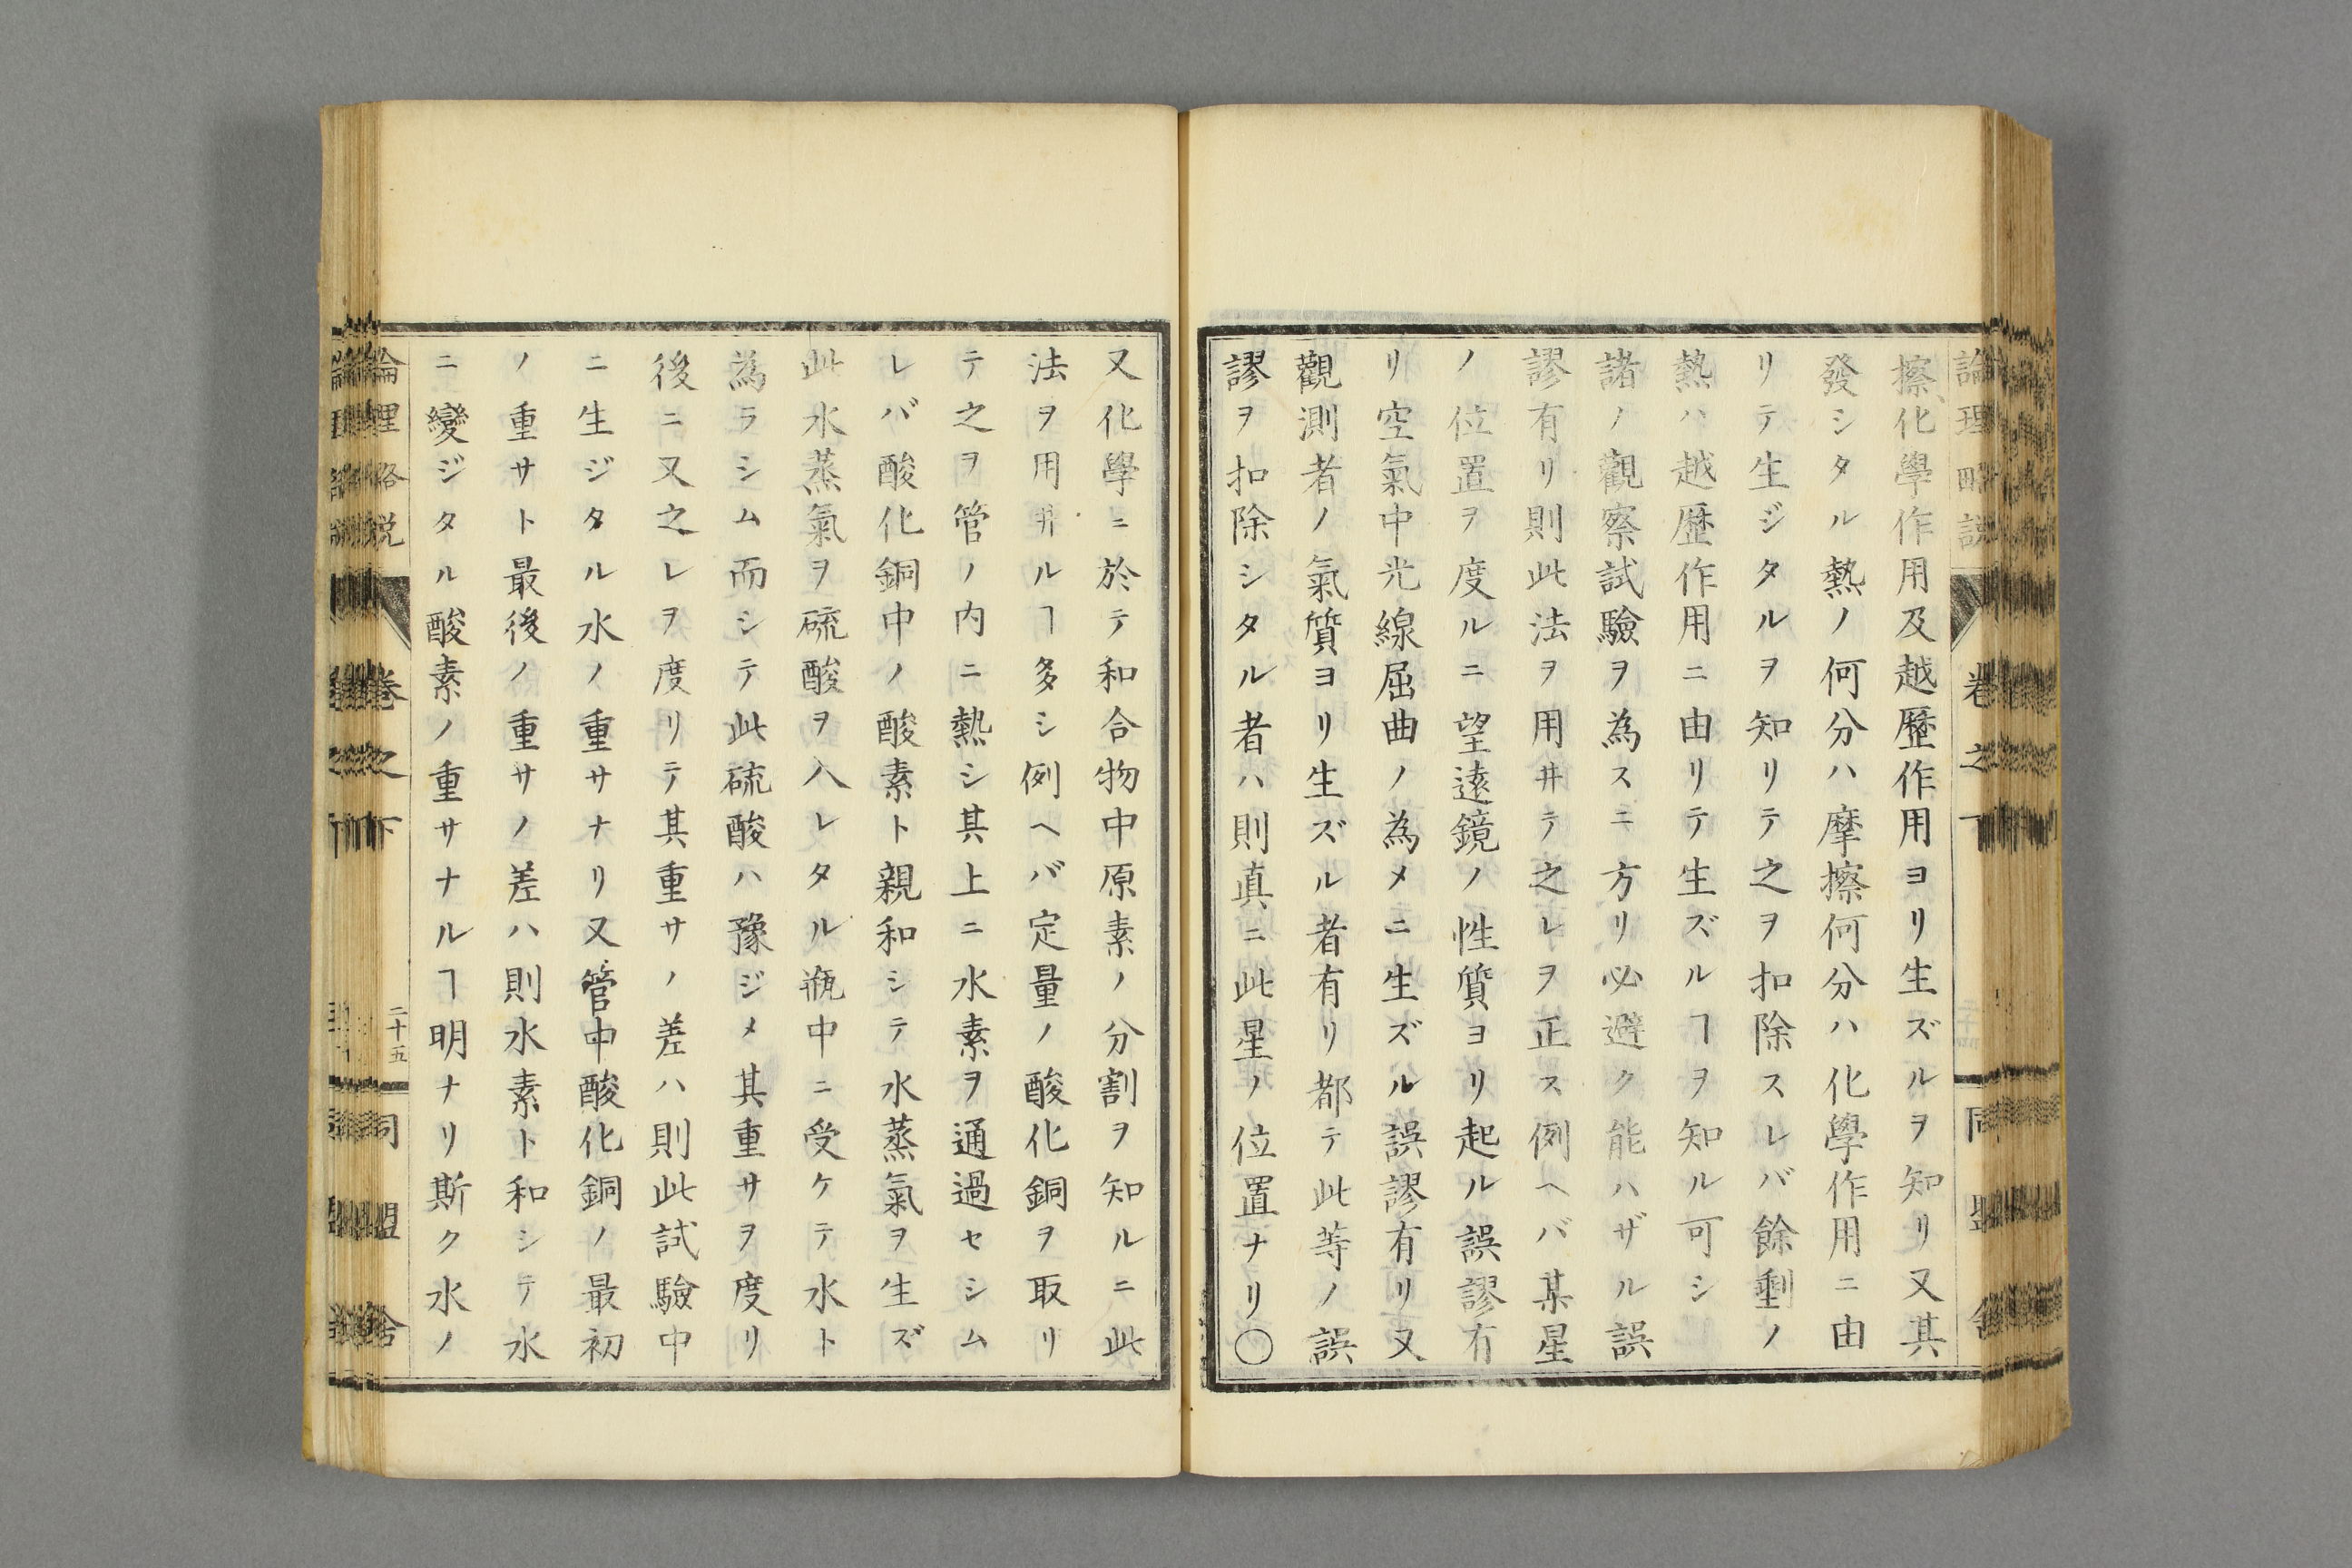 論理略説
卷之下
同盟舍
擦化學作用及越歷作用ヨリ生ズルヲ知リ又其
發シタル熱ノ何分ハ摩擦何分ハ化學作用ニ由
リテ生ジタルヲ知リテ之ヲ扣除スレバ餘剩ノ
熱ハ越歷作用ニ由リテ生ズルヿヲ知ル可シ
諸ノ觀察試驗ヲ為スニ方リ必避ク能ハザル誤
謬有リ則此法ヲ用井テ之レヲ正ス例ヘバ某星
ノ位置ヲ度ルニ望遠鏡ノ性質ヨリ起ル誤謬有
リ空氣中光線屈曲ノ為メニ生ズル誤謬有リ又
觀測者ノ氣質ヨリ生ズル者有リ都テ此等ノ誤
謬ヲ扣除シタル者ハ則真ニ此星ノ位置ナリ〇
又化學ニ於テ和合物中原素ノ分割ヲ知ルニ此
法ヲ用井ルヿ多シ例ヘバ定量ノ酸化銅ヲ取リ
テ之ヲ管ノ內ニ熱シ其上ニ水素ヲ通過セシム
レバ酸化銅中ノ酸素ト親和シテ水蒸氣ヲ生ズ
此水蒸氣ヲ硫酸ヲ入レタル瓶中ニ受ケテ水ト
為ラシム而シテ此硫酸ハ豫ジメ其重サヲ度リ
後ニ又之レヲ度リテ其重サノ差ハ則此試驗中
ニ生ジタル水ノ重サナリ又管中酸化銅ノ最初
ノ重サト最後ノ重サノ差ハ則水素ト和シテ水
ニ變ジタル酸素ノ重サナルヿ明ナリ斯ク水ノ
論理略説
卷之下
二十五
同盟舍